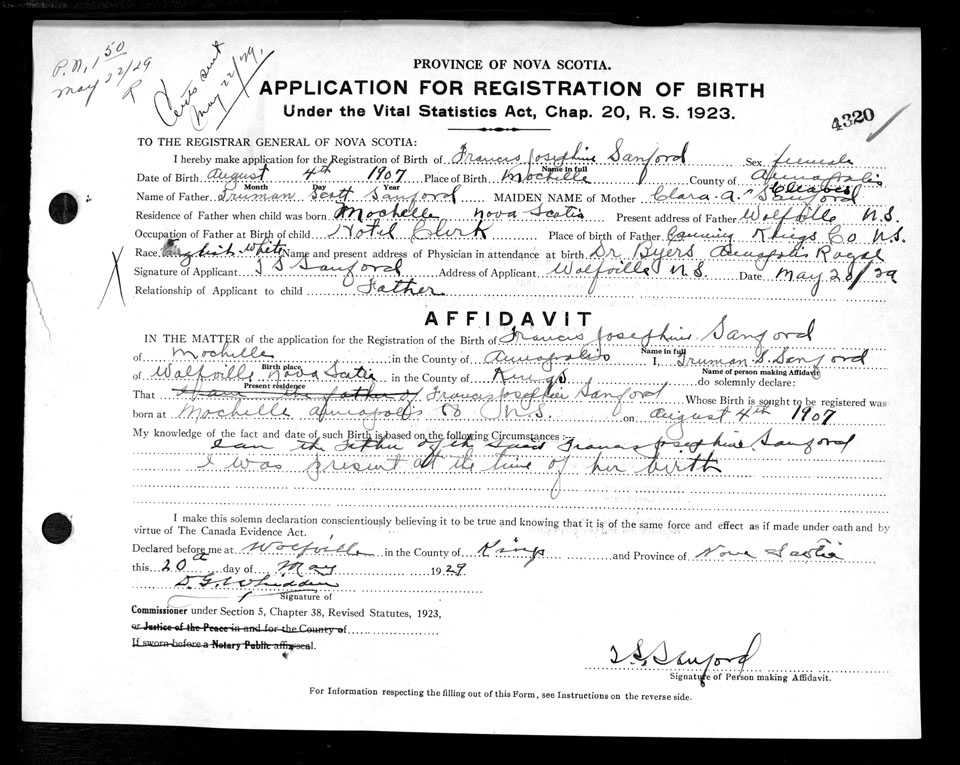 P.N. 1 50
May 22/29
R
Certs sent
May 22/29.
PROVINCE OF NOVA SCOTIA.
APPLICATION FOR REGISTRATION OF BIRTH
Under the Vital Statistics Act, Chap. 20, R. S. 1923.
4320
TO THE REGISTRAR GENERAL OF NOVA SCOTIA:
I hereby make application for the Registration of Birth of Francis Josephine Sanford Sex female
Name in full
Date of Birth August 4th 1907 Place of Birth Mochelle County of Annapolis
Month Day Year
Name of Father Truman Scott Sanford MAIDEN NAME of Mother Clara A. Sanford
Residence of Father when child was born Mochelle Nova Scotia Present address of Father Wolfville N.S.
Occupation of Father at Birth of child Hotel Clerk Place of birth of Father Canning Kings Co N.S.
Race English White Name and present address of Physician in attendance at birth Dr Byers Annapolis Royal
Signature of Applicant T S Sanford Address of Applicant Wolfville N.S. Date May 20/29
Relationship of Applicant to child Father
AFFIDAVIT
IN THE MATTER of the application for the Registration of the Birth of Francis Josephine Sanford
Name in full
of Mochelle in the County of Annapolis I, Truman S. Sanford
Birth place Name of person making Affidavit
of Wolfville Nova Scotia in the County of Kings do solemnly declare:
Present residence
That I am the father of Francis Josephine Sanford Whose Birth is sought to be registered was
born at Mochelle Annapolis Co N.S. on August 4th 1907
My knowledge of the fact and date of such Birth is based on the following Circumstances:—
I am the Father of the said Francis Josephine Sanford
I was present at the time of her birth
I make this solemn declaration conscientiously believing it to be true and knowing that it is of the same force and effect as if made under oath and by
virtue of The Canada Evidence Act.
Declared before me at Wolfville in the County of Kings and Province of Nova Scotia
this 20th day of May 1929
D.G. Whidden
Signature of
Commissioner under Section 5, Chapter 38, Revised Statutes, 1923,
or Justice of the Peace in and for the County of
If sworn before a Notary Public affix seal.
T S Sanford
Signature of Person making Affidavit.
For Information respecting the filling out of this Form, see Instructions on the reverse side.